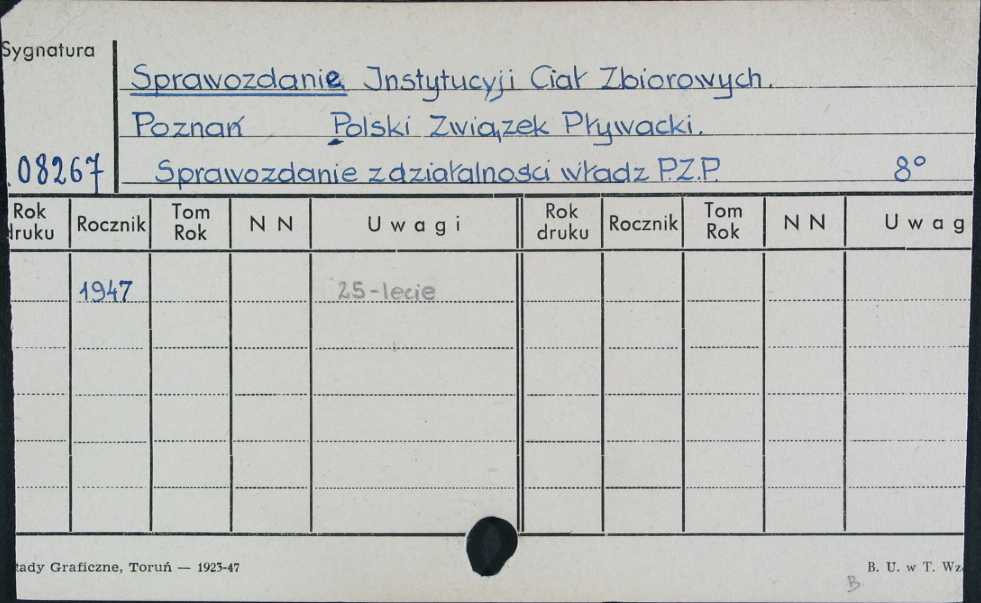 Sygnatura
Sprawozdanie Instytucyji Ciał Zbiorowych.
Poznań Polski Związek Pływacki.
08267 Sprawozdanie z działalności władz P.Z.P. 8°
Rok druku Rocznik Tom Rok N N Uwagi Rok druku Rocznik Tom Rok N N Uwag
1947 25-lecie
łady Graficzne, Toruń — 1923-47 B. U. w T. Wz
B